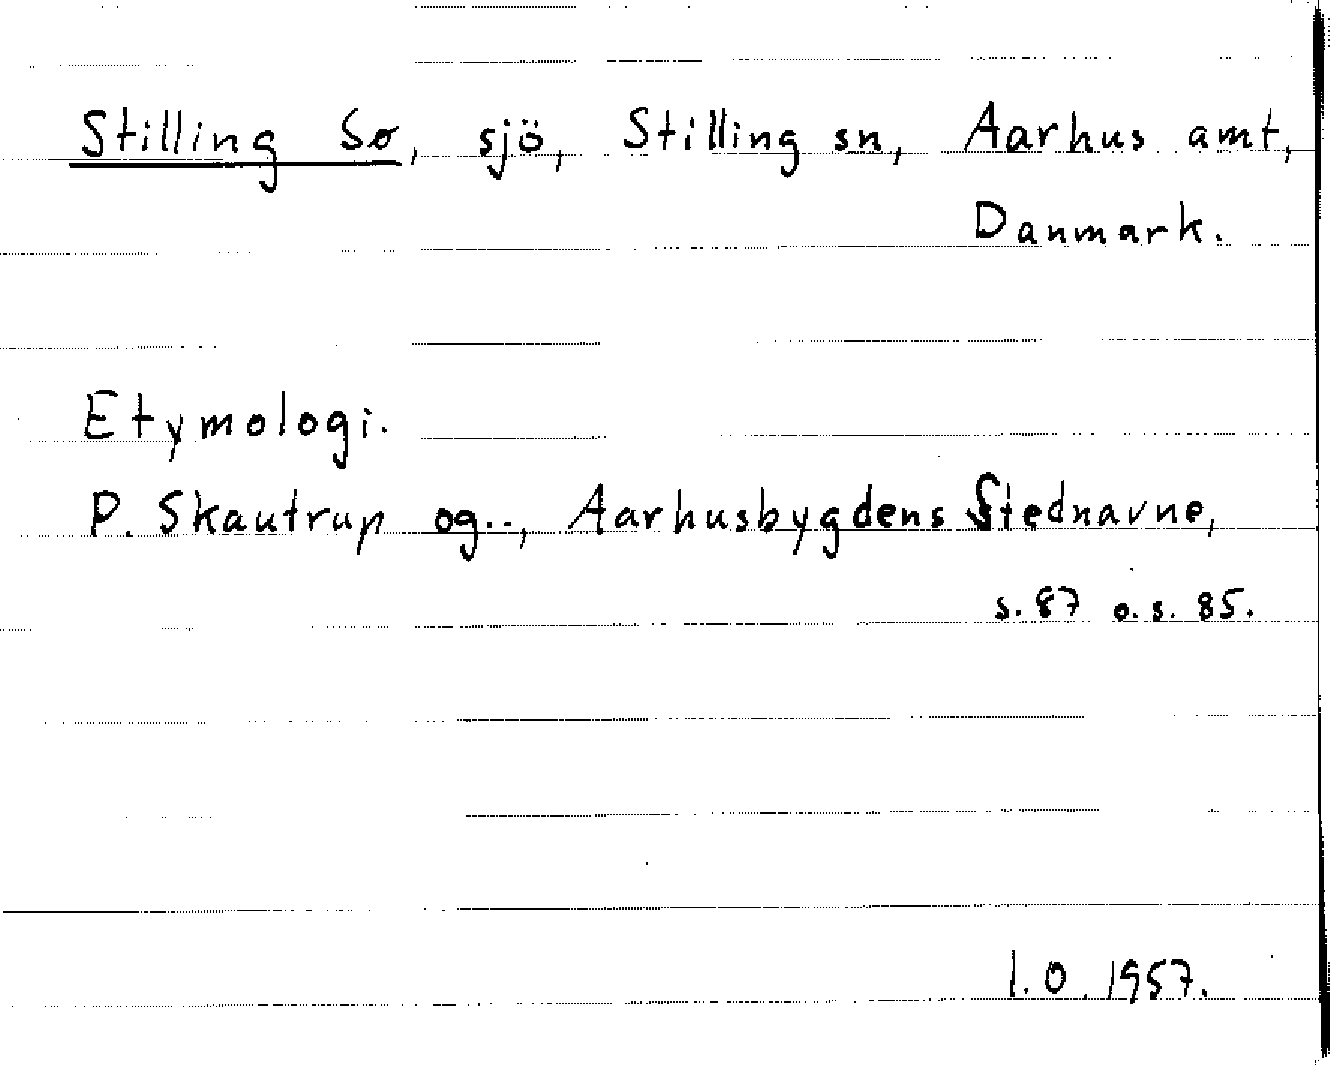 Stilling Sø, sjö, Stilling sn, Aarhus amt,
Danmark.
Etymologi.
P. Skautrup og.., Aarhusbygdens Stednavne,
s. 87 o. s. 85.
I. O. 1957.